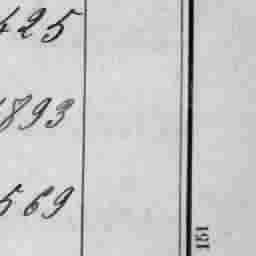 425
1893
569
151